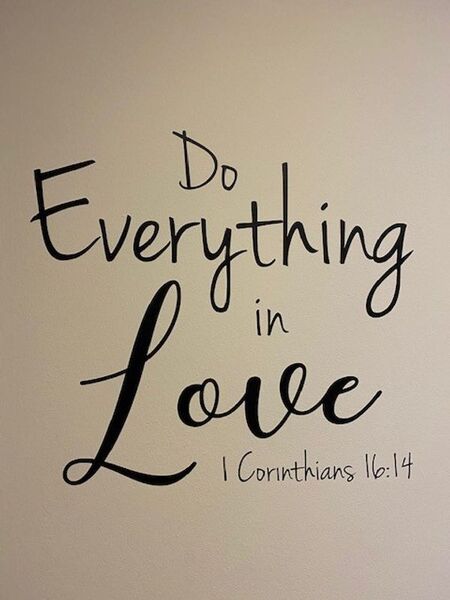 Do
Everything
in
Love
1 Corinthians 16:14